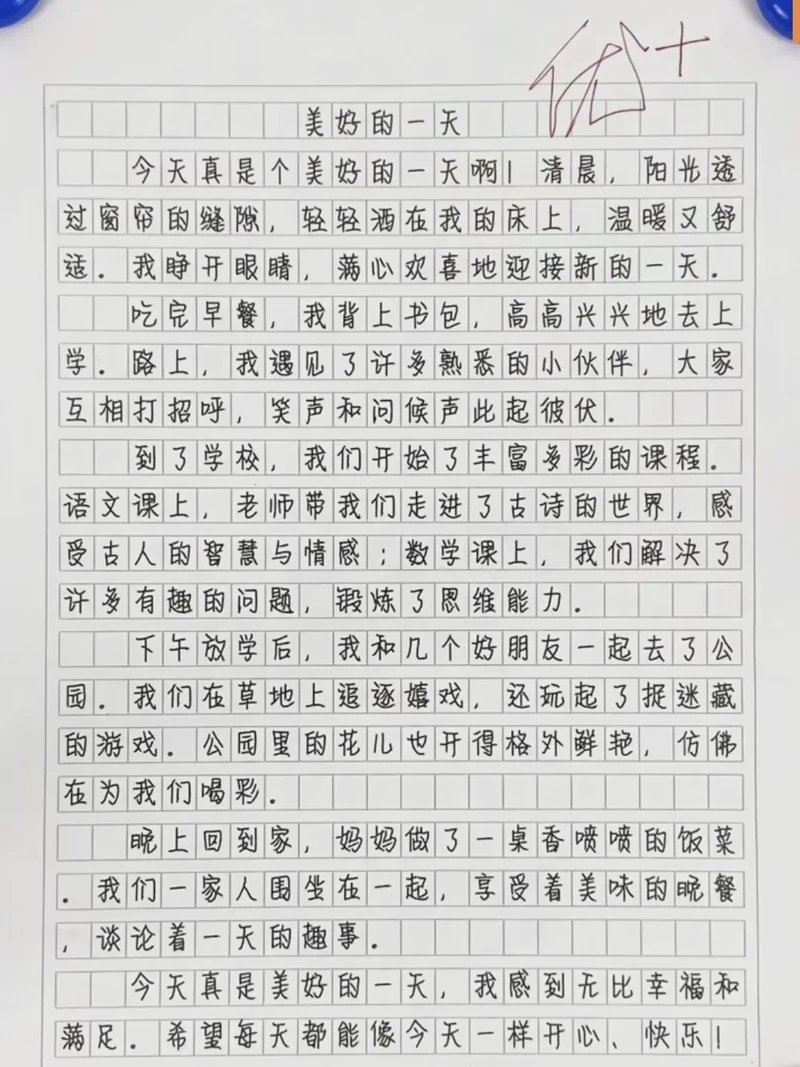 优+
美好的一天
今天真是个美好的一天啊!清晨,阳光透
过窗帘的缝隙,轻轻洒在我的床上,温暖又舒
适.我睁开眼睛,满心欢喜地迎接新的一天.
吃完早餐,我背上书包,高高兴兴地去上
学.路上,我遇见了许多熟悉的小伙伴,大家
互相打招呼,笑声和问候声此起彼伏.
到了学校,我们开始了丰富多彩的课程.
语文课上,老师带我们走进了古诗的世界,感
受古人的智慧与情感;数学课上,我们解决了
许多有趣的问题,锻炼了思维能力.
下午放学后,我和几个好朋友一起去了公
园.我们在草地上追逐嬉戏,还玩起了捉迷藏
的游戏.公园里的花儿也开得格外鲜艳,仿佛
在为我们喝彩.
晚上回到家,妈妈做了一桌香喷喷的饭菜
.我们一家人围坐在一起,享受着美味的晚餐
,谈论着一天的趣事.
今天真是美好的一天,我感到无比幸福和
满足.希望每天都能像今天一样开心、快乐!